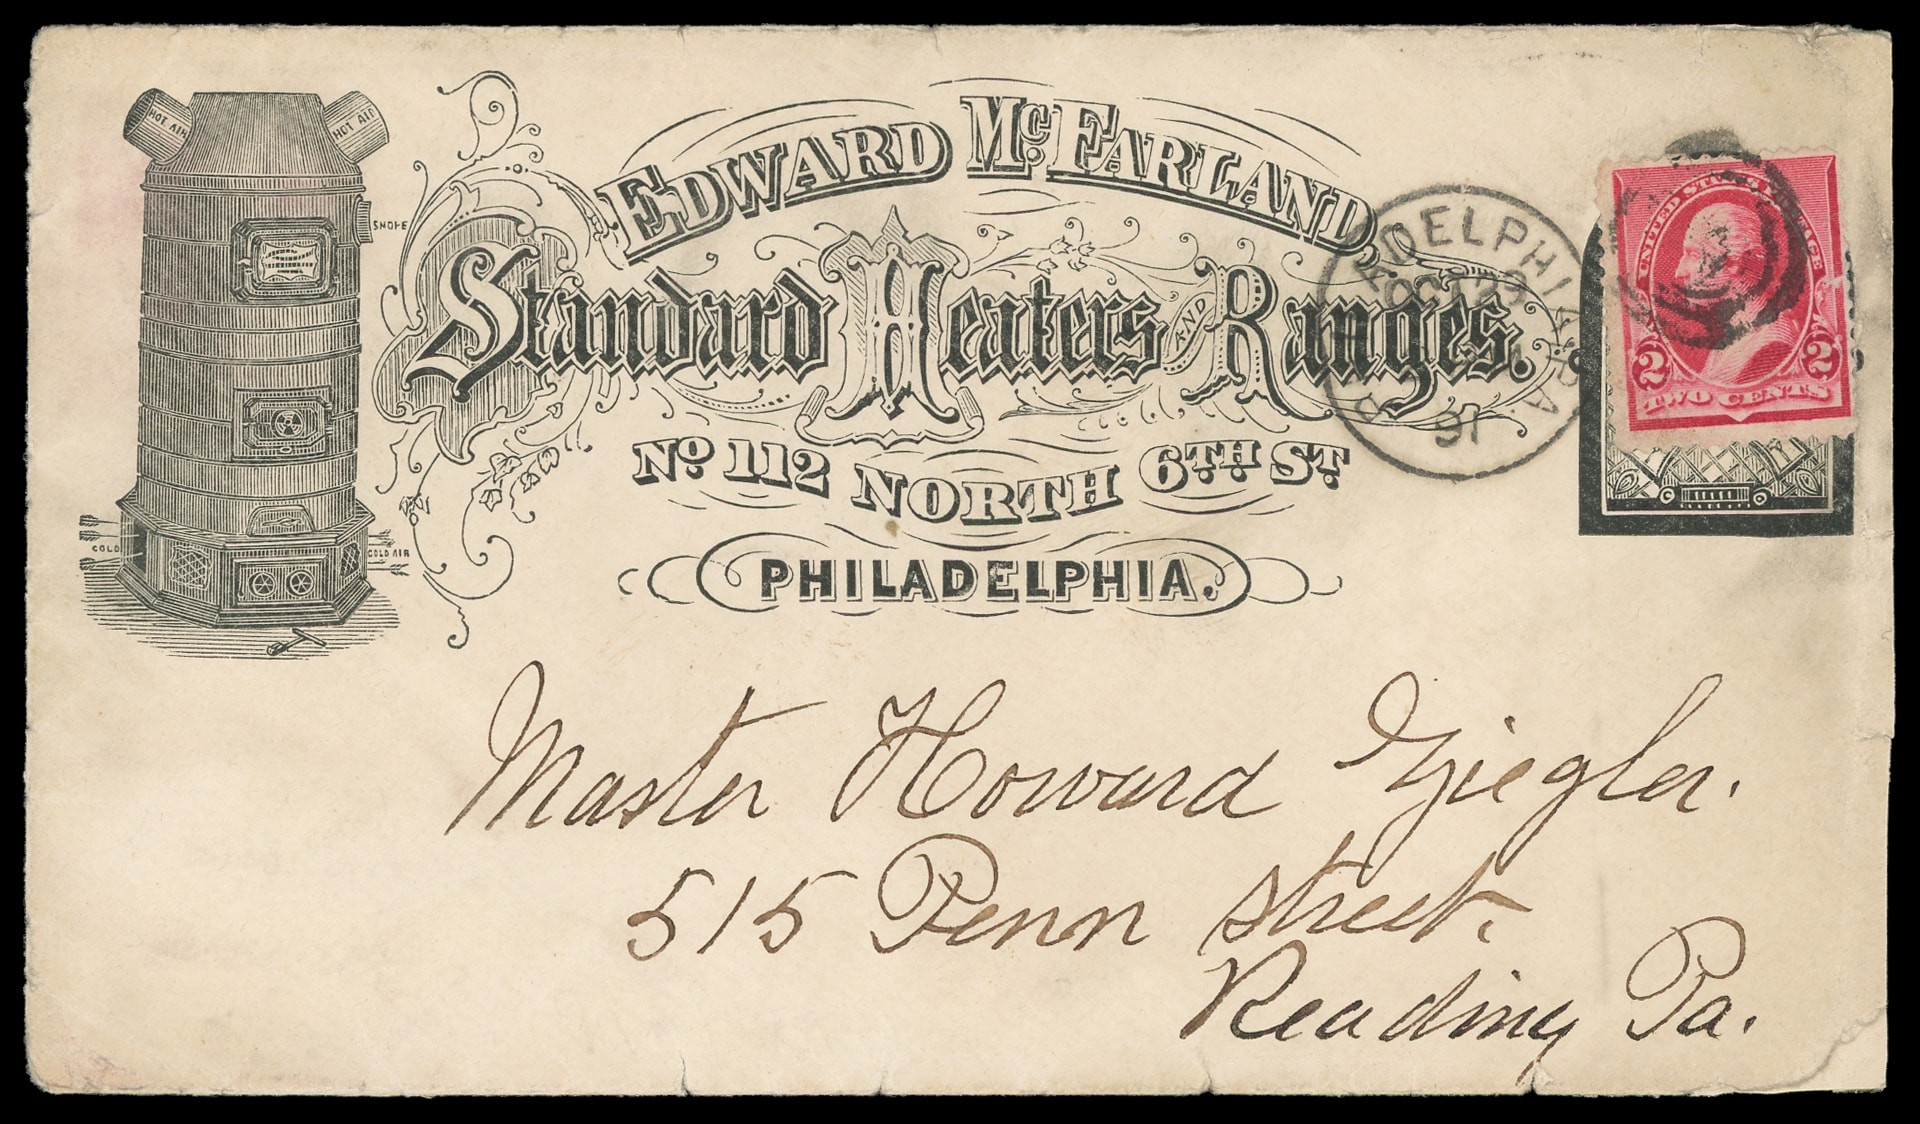 HOT AIR
HOT AIR
SMOKE
COLD
COLD AIR
EDWARD McFARLAND,
Standard Heaters AND Ranges.
No. 112 NORTH 6TH ST.
PHILADELPHIA.
PHILADELPHIA, PA.
OCT
91
UNITED STATES POSTAGE
2 2
TWO CENTS
Master Howard Ziegler.
515 Penn street,
Reading Pa.